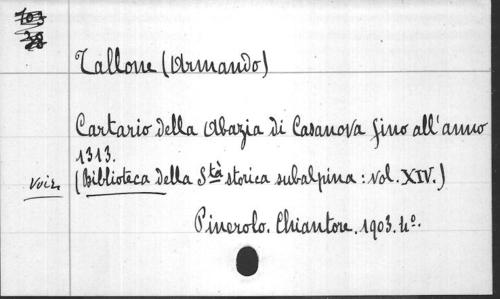 Tallone (Armando)
Cartario della Abazia di Casanova fino all'anno
1313.
Voir (Biblioteca della Stà storica subalpina : vol. XIV.)
Pinerolo. Chiantore. 1903. 4º.